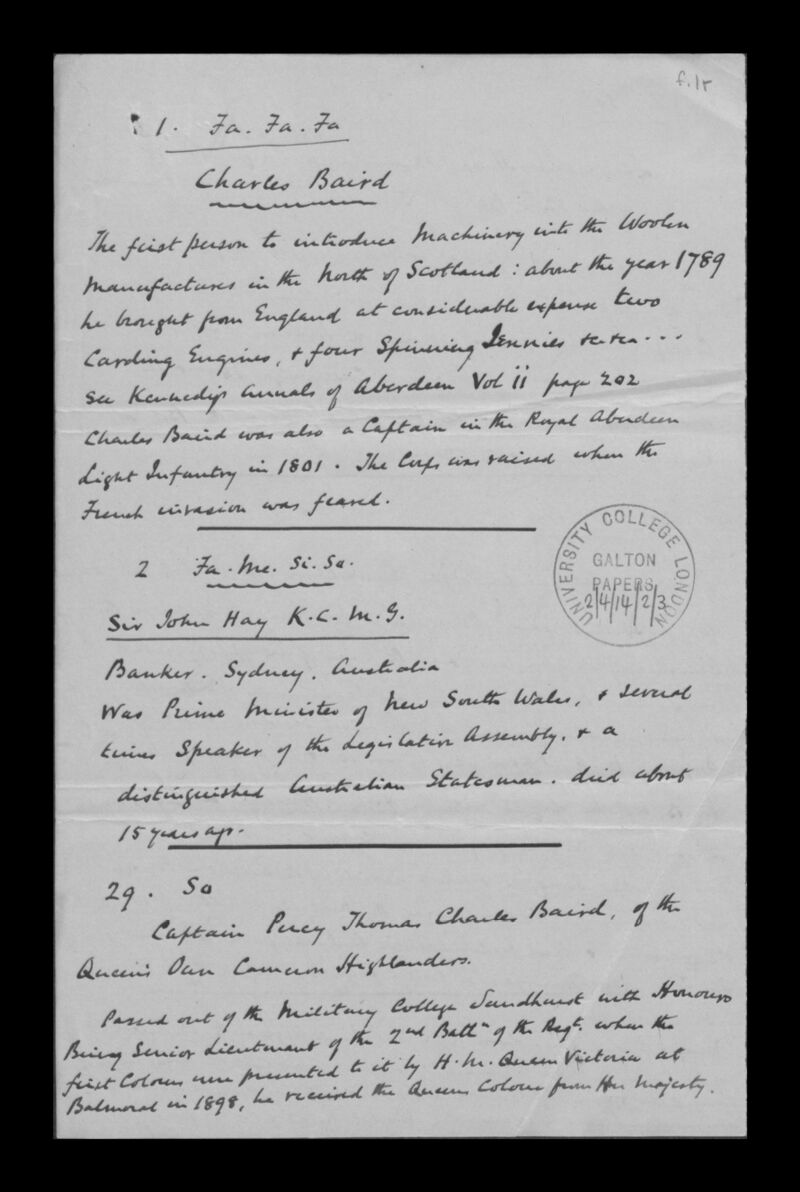 f.1r
1. Fa. Fa. Fa
Charles Baird
The first person to introduce Machinery into the Woolen
Manufactures in the North of Scotland : about the year 1789
he brought from England at considerable expense two
Carding Engines, & four Spinning Jennies &c &c - - -
See Kennedy's Annals of Aberdeen Vol ii page 202
Charles Baird was also a Captain in the Royal Aberdeen
Light Infantry in 1801. The Corps was raised when the
French invasion was feared.
2 Fa. Me. Si. So.
Sir John Hay K.C.M.G.
Banker. Sydney. Australia
Was Prime Minister of New South Wales, & several
times Speaker of the Legislative Assembly, & a
distinguished Australian Statesman. died about
15 years ago.
UNIVERSITY COLLEGE LONDON
GALTON
PAPERS
2/4/14/2/3
29. So
Captain Percy Thomas Charles Baird, of the
Queen's Own Cameron Highlanders.
Passed out of the Military College Sandhurst with Honours
Being Senior Lieutenant of the 2nd Battn of the Regt. when the
first Colours were presented to it by H.M. Queen Victoria at
Balmoral in 1898, he received the Queens Colour from Her Majesty.